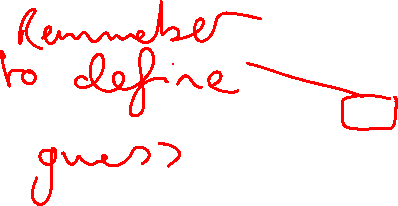 Remember
to define
guess